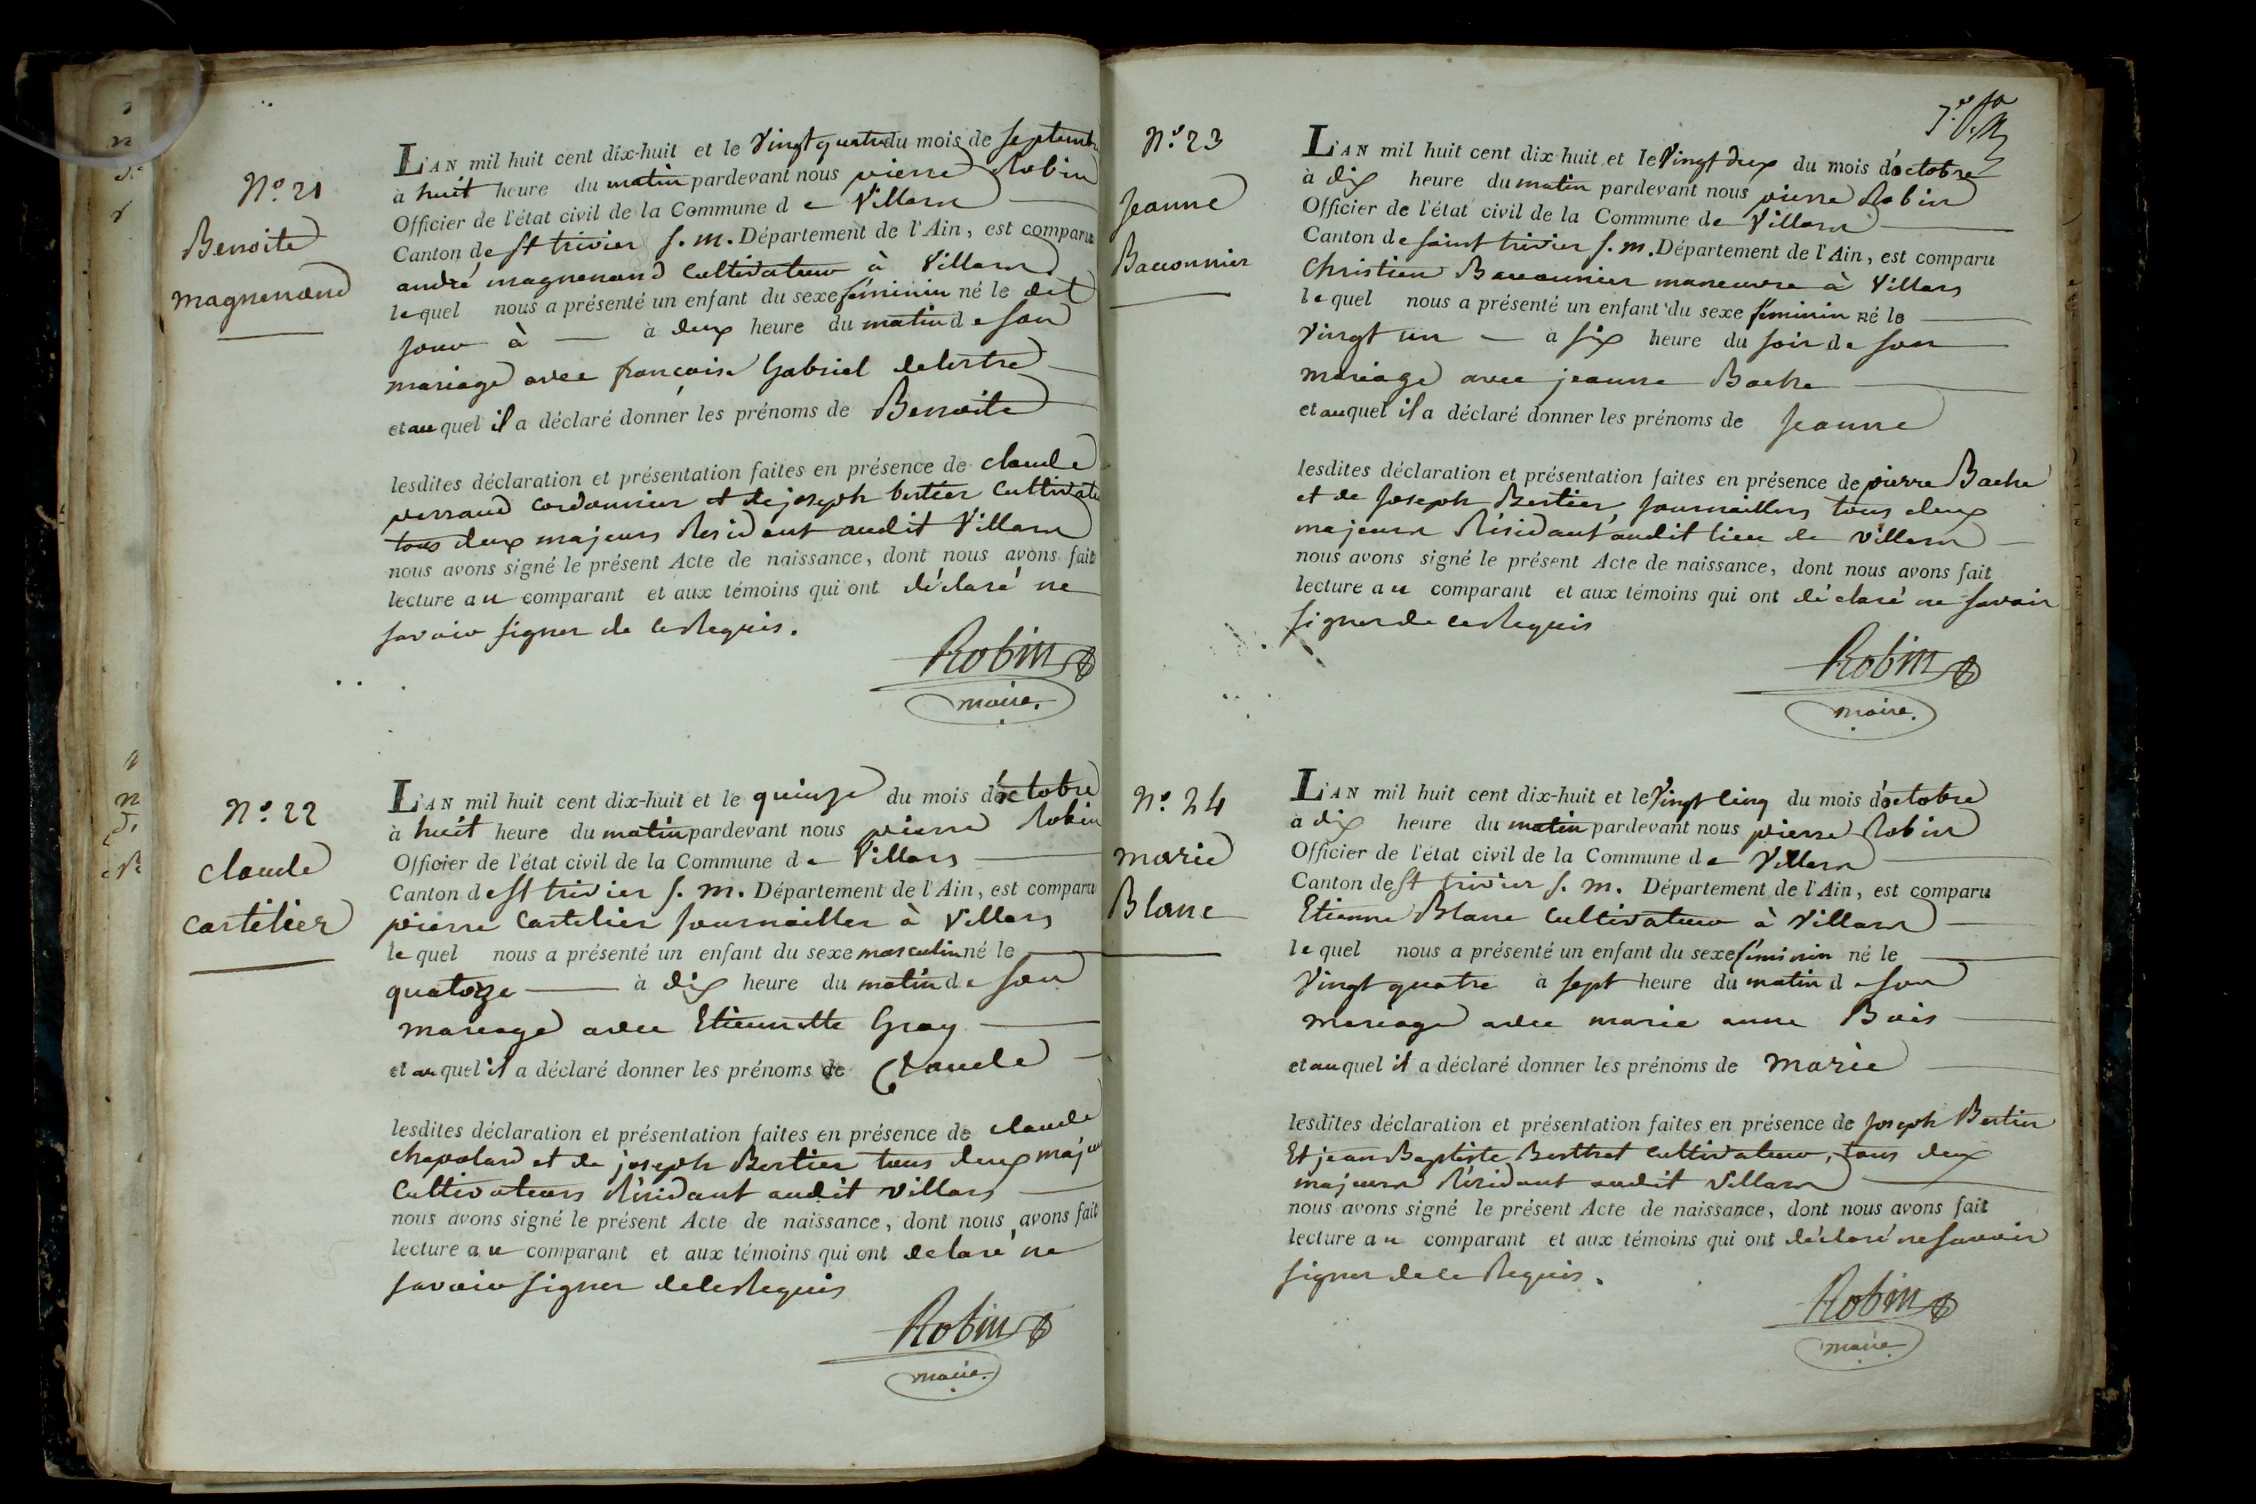 N.o 21
Benoite
magnenand
L'AN mil huit cent dix-huit et le vingt quatre du mois de septembre
à huit heure du matin pardevant nous pierre Robin
Officier de l'état civil de la Commune de Villars
Canton de St trivier s. m. Département de l'Ain, est comparu
andré magnenand cultivateur à Villars
lequel nous a présenté un enfant du sexe féminin né le dit
jour à — à deux heure du matin de son
mariage avec francoise Gabriel delertre
et au quel il a déclaré donner les prénoms de Benoite
lesdites déclaration et présentation faites en présence de claude
perraud cordonnier et de joseph bertier cultivate
tous deux majeurs Residant audit Villars
nous avons signé le présent Acte de naissance, dont nous avons fait
lecture au comparant et aux témoins qui ont déclaré ne
savoir signer de ce Requis.
Robin
maire.
N.o 22
claude
cartelier
L'AN mil huit cent dix-huit et le quinze du mois d'octobre
à huit heure du matin pardevant nous pierre Robin
Officier de l'état civil de la Commune de Villars
Canton de St trivier s. m. Département de l'Ain, est comparu
pierre cartelier journailler à Villars
lequel nous a présenté un enfant du sexe masculin né le
quatorze — à dix heure du matin de son
mariage avec Etiennette Gray
et au quel il a déclaré donner les prénoms de Claude
lesdites déclaration et présentation faites en présence de claude
chapolard et de joseph Bertier tous deux majeu
cultivateurs Résidant audit Villars
nous avons signé le présent Acte de naissance, dont nous avons fait
lecture au comparant et aux témoins qui ont declaré ne
savoir signer de ce Requis
Robin
maire.
N.o 23
Jeanne
Bauonnier
L'AN mil huit cent dix-huit et le Vingt deux du mois d'octobre
à dix heure du matin pardevant nous pierre Robin
Officier de l'état civil de la Commune de Villars
Canton de saint trivier s. m. Département de l'Ain, est comparu
Christien Bauonnier maneuvre à Villars
lequel nous a présenté un enfant du sexe féminin né le
Vingt un — à six heure du soir de son
mariage avec jeanne Bache
et au quel il a déclaré donner les prénoms de Jeanne
lesdites déclaration et présentation faites en présence de pierre Bache
et de Joseph Bertier, journaillers tous deux
majeurs Résidant audit lieu de Villars
nous avons signé le présent Acte de naissance, dont nous avons fait
lecture au comparant et aux témoins qui ont déclaré ne savoir
signer de ce Requis
Robin
maire.
N.o 24
marie
Blanc
L'AN mil huit cent dix-huit et le Vingt cinq du mois d'octobre
à dix heure du matin pardevant nous pierre Robin
Officier de l'état civil de la Commune de Villars
Canton de St trivier s. m. Département de l'Ain, est comparu
Etienne Blanc cultivateur à Villars
lequel nous a présenté un enfant du sexe féminin né le
Vingt quatre à sept heure du matin de son
mariage avec marie anne Bois
et au quel il a déclaré donner les prénoms de Marie
lesdites déclaration et présentation faites en présence de Joseph Bertier
Et jean Baptiste Berthet cultivateur, tous deux
majeurs Résidant audit Villars
nous avons signé le présent Acte de naissance, dont nous avons fait
lecture au comparant et aux témoins qui ont déclaré ne savoir
signer de ce Requis.
Robin
maire